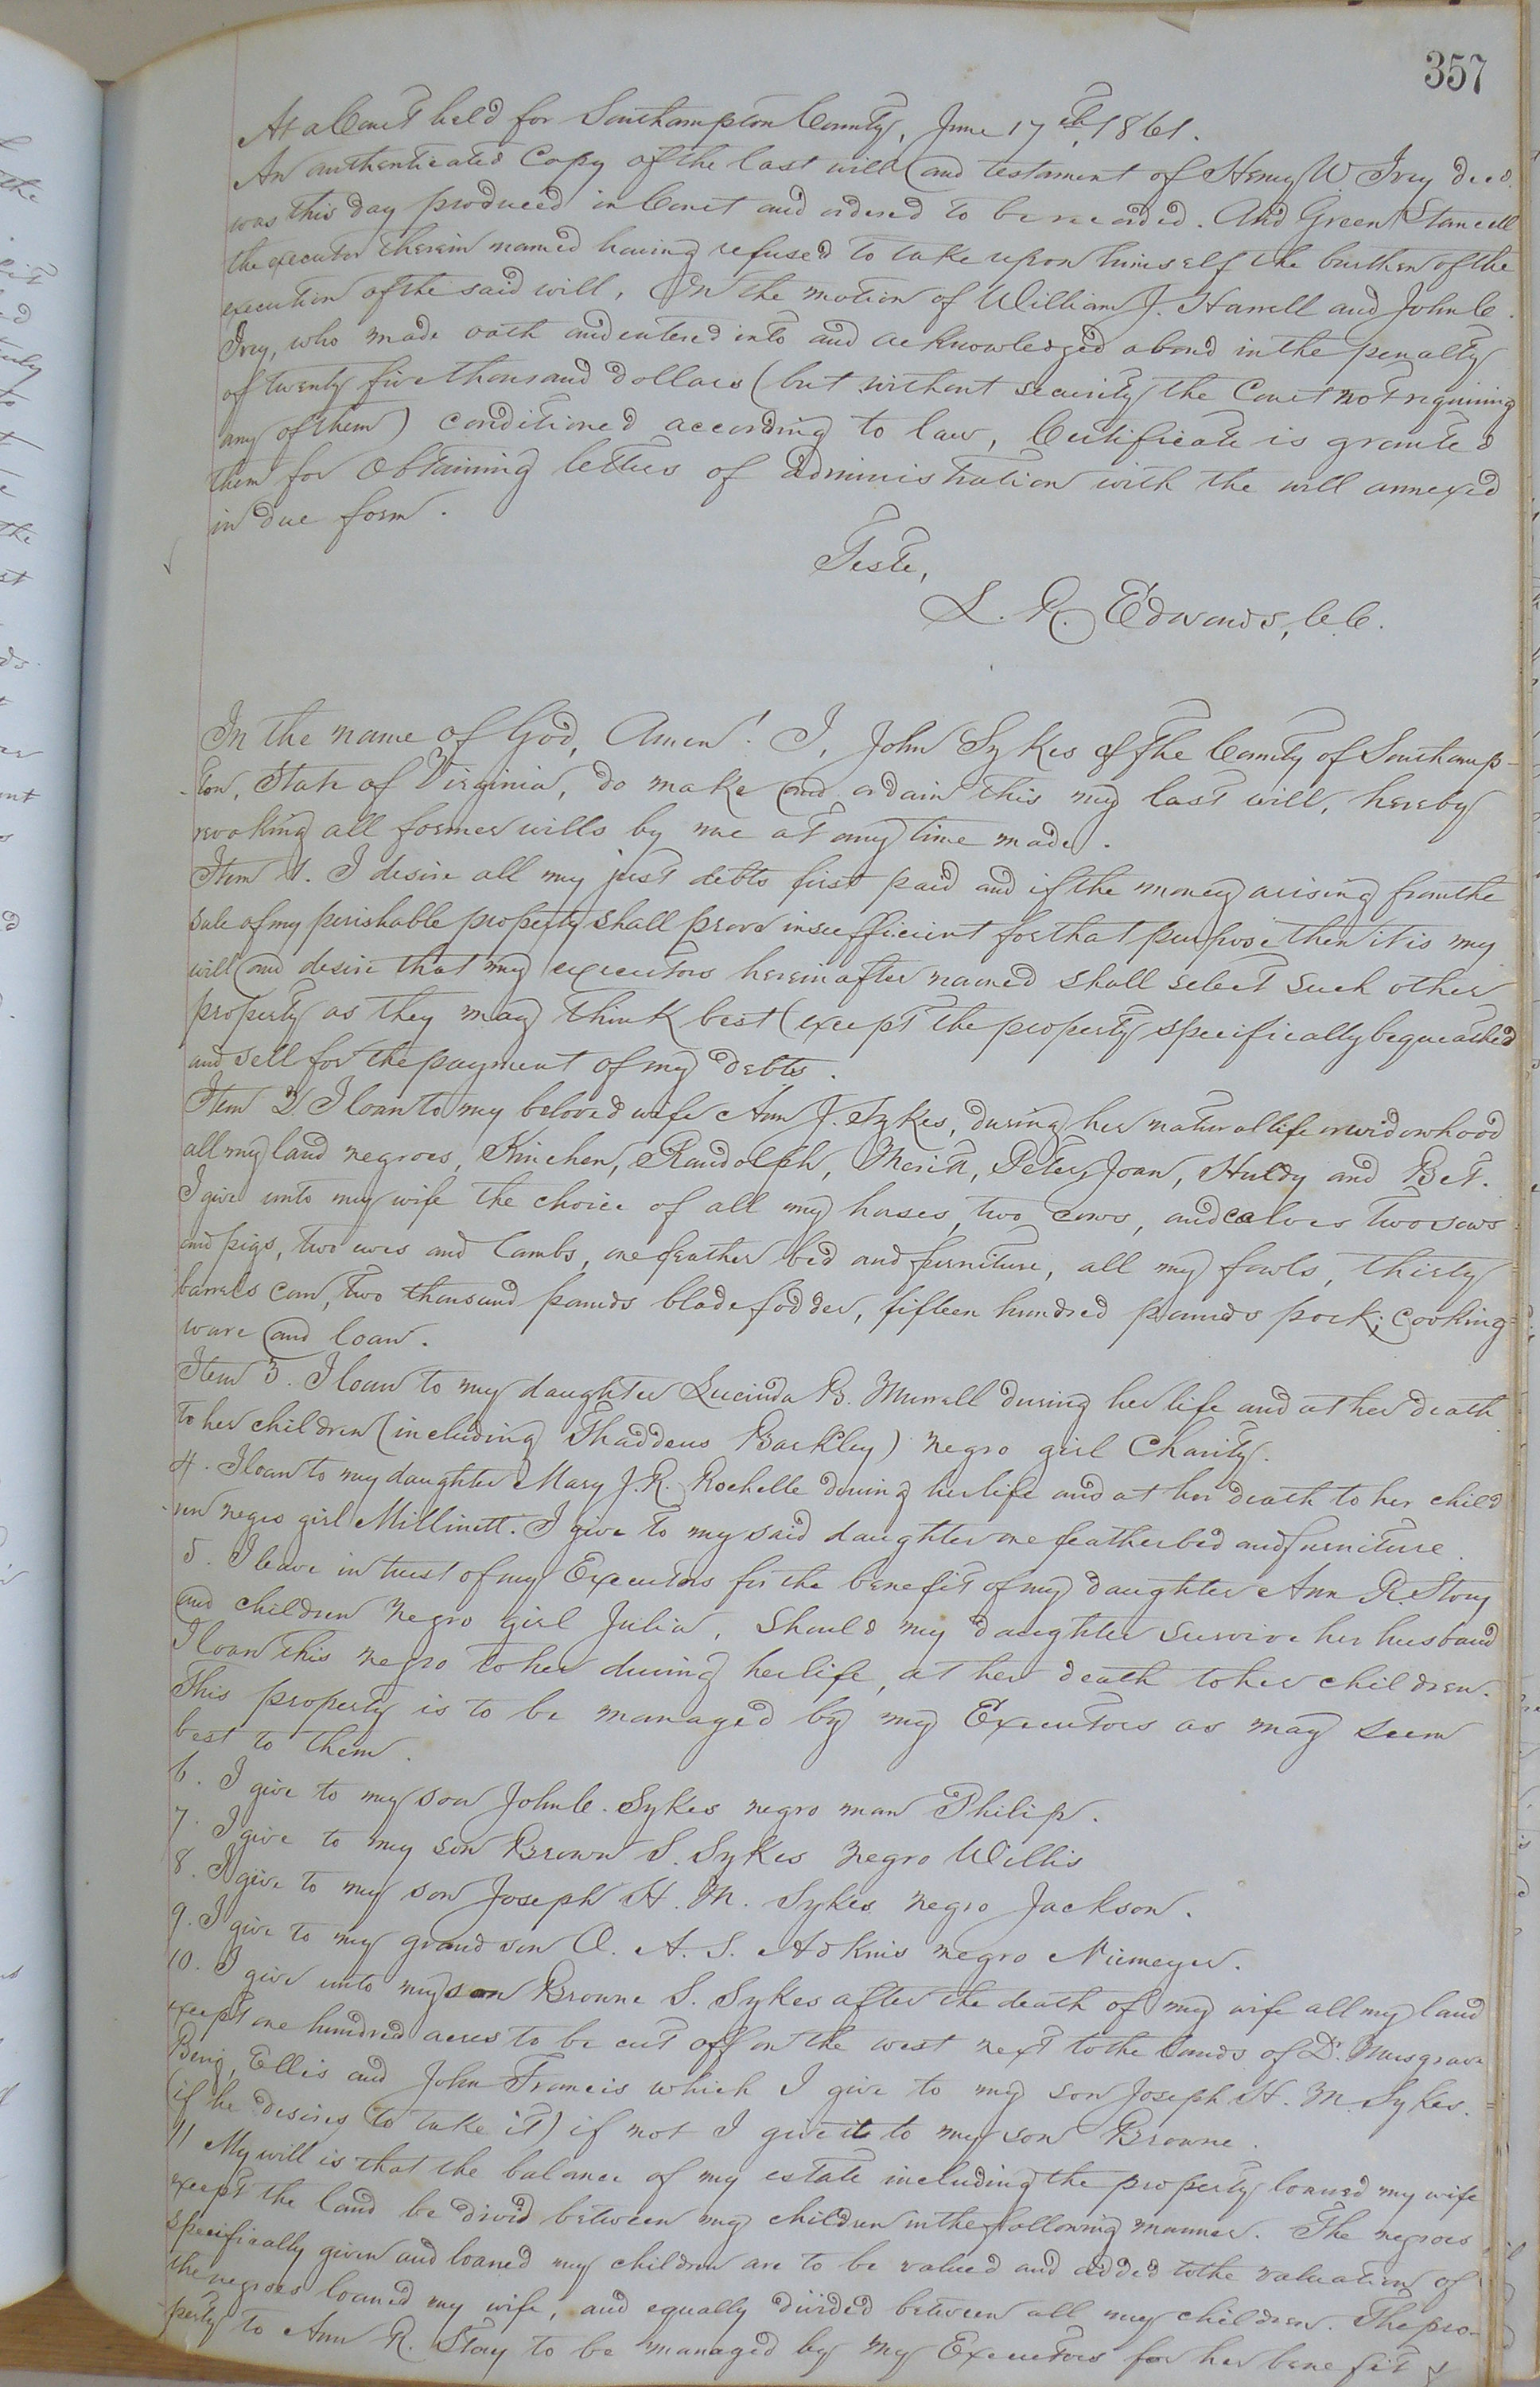 357
At a Court held for Southampton County, June 17th, 1861.
An authenticated Copy of the last will and testament of Henry W. Ivey decd.
was this day produced in Court and ordered to be recorded. And Green Stancell
the executor therein named having refused to take upon himself the burthen of the
execution of the said will, On the motion of William J. Harrell and John C.
Ivey, who made oath and entered into and acknowledged a bond in the penalty
of twenty five thousand dollars (but without security the Court not requiring
any of them) conditioned according to law, Certificate is granted
them for obtaining letters of administration with the will annexed
in due form.
Teste,
L. R. Edwards, C.C.
In the name of God, Amen! I, John Sykes of the County of Southamp-
-ton, State of Virginia, do make and ordain this my last will, hereby
revoking all former wills by me at any time made.
Item 1. I desire all my just debts first paid and if the money arising from the
sale of my perishable property shall prove insufficient for that purpose then it is my
will and desire that my executors hereinafter named shall select such other
property as they may think best (except the property specifically bequeathed
and sell for the payment of my debts.
Item 2. I loan to my beloved wife Ann J. Sykes, during her natural life or widowhood
all my land negroes, Kinchen, Randolph, Merit, Peter, Joan, Huldy and Bet.
I give unto my wife the choice of all my horses, two cows, and calves two sows
and pigs, two ewes and lambs, one feather bed and furniture, all my fowls, thirty
barrels corn, two thousand pounds blade fodder, fifteen hundred pounds pork; cooking=
ware and loan.
Item 3. I loan to my daughter Lucinda B. Murrell during her life and at her death
to her children (including Thaddeus Barkley) negro girl Charity.
4. I loan to my daughter Mary J. R. Rochelle during her life and at her death to her child
-ren negro girl Millinett. I give to my said daughter one feather bed and furniture.
5. I leave in trust of my Executors for the benefit of my daughter Ann R. Story
and children negro girl Julia, should my daughter survive her husband
I loan this negro to her during her life, at her death to her children.
This property is to be managed by my Executors as may seem
best to them.
6. I give to my son John C. Sykes negro man Philip.
7. I give to my son Brown S. Sykes negro Willis
8. I give to my son Joseph H. M. Sykes negro Jackson.
9. I give to my grand son O. A. S. Adkins negro Niemeyer.
10. I give unto my son Browne S. Sykes after the death of my wife all my land
except one hundred acres to be cut off on the west next to the lands of Dr. Musgrave
Benj. Ellis and John Francis which I give to my son Joseph H. M. Sykes.
(if he desires to take it) if not I give it to my son Browne.
11 My will is that the balance of my estate including the property loaned my wife
except the land be divid between my children in the following manner. The negroes
specifically given and loaned my children are to be valued and added to the valuation of
the negroes loaned my wife, and equally divided between all my children. The pro-
perty to Ann R. Story to be managed by my Executors for her benefit &